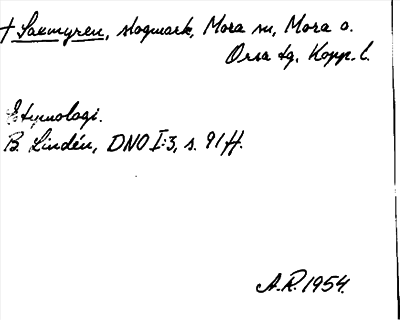 † Saxmyren, skogmark, Mora sn, Mora o.
Orsa tg. Kopp. l.
Etymologi.
B. Lindén, DNO I:3, s. 91 ff.
A.R. 1954.